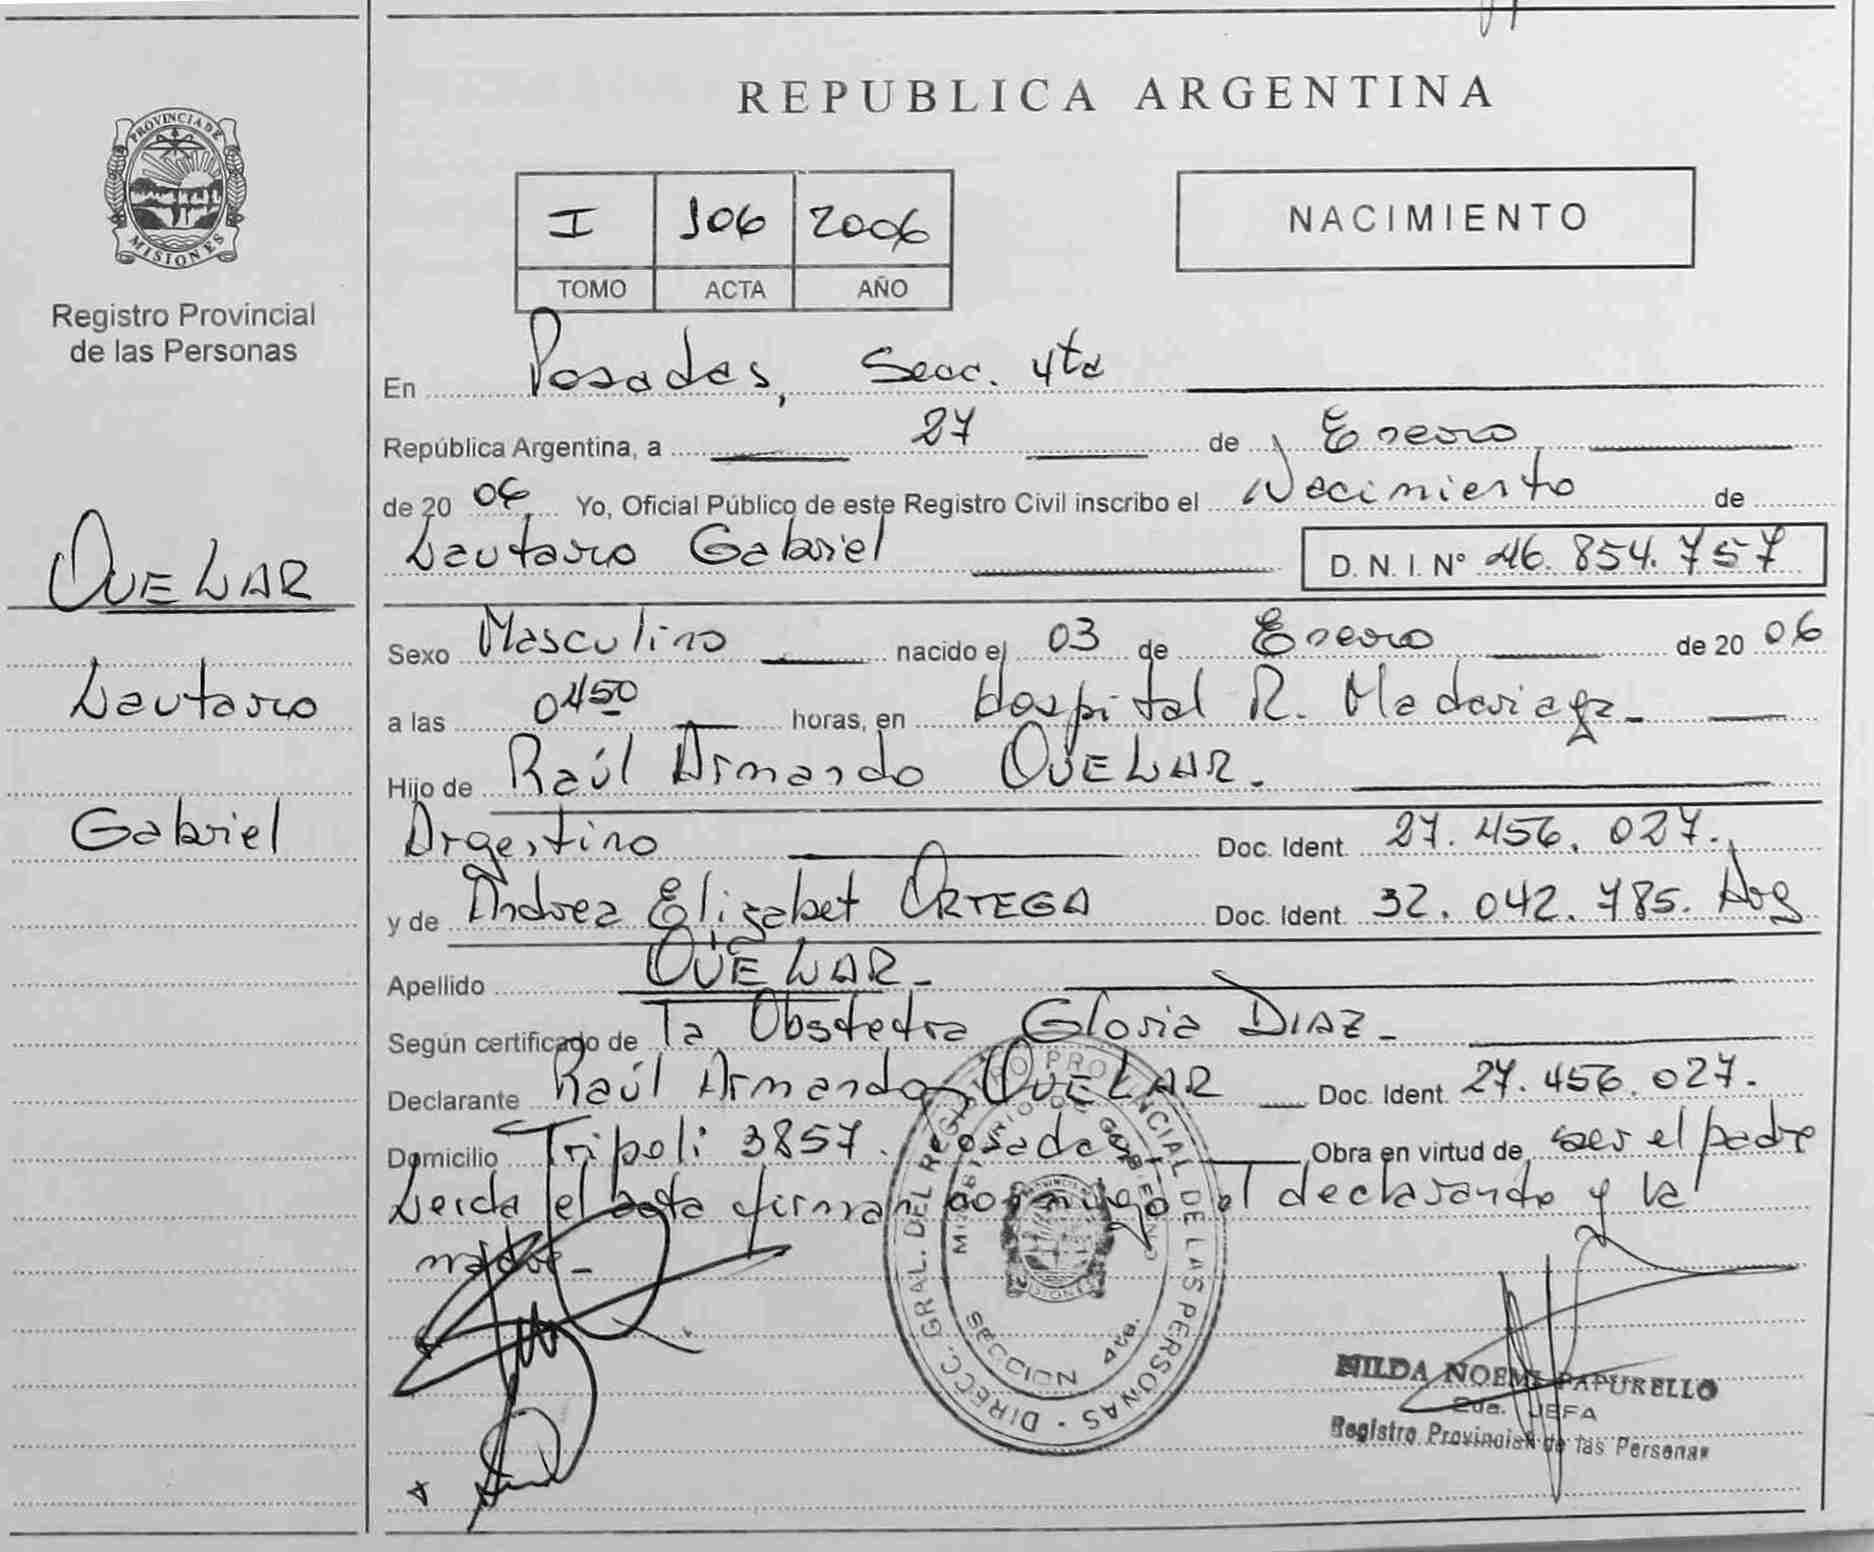 PROVINCIA DE
MISIONES
Registro Provincial
de las Personas
OVELAR
Lautaro
Gabriel
REPUBLICA ARGENTINA
I 106 2006
TOMO ACTA AÑO
NACIMIENTO
En Posadas, Secc. 4ta
República Argentina, a 27 de Enero
de 20 06 Yo, Oficial Público de este Registro Civil inscribo el Nacimiento de
Lautaro Gabriel D. N. I. Nº 46.854.757
Sexo Masculino nacido el 03 de Enero de 20 06
a las 0450 horas, en Hospital R. Madariaga
Hijo de Raúl Armando OVELAR.
Argentino Doc. Ident. 27.456.027.
y de Andrea Elizabet ORTEGA Doc. Ident. 32.042.785. Arg
Apellido OVELAR
Según certificado de la Obstetra Gloria DIAZ
Declarante Raúl Armando OVELAR Doc. Ident. 27.456.027.
Domicilio Tripoli 3857. Posadas Obra en virtud de ser el padre
Leida el acta firman conmigo el declarante y la
madre
DIRECC. GRAL. DEL REGISTRO PROVINCIAL DE LAS PERSONAS
MINISTERIO DE GOBIERNO
SECCION 4ta.
NILDA NOEMI PAPURELLO
2da. JEFA
Registro Provincial de las Personas